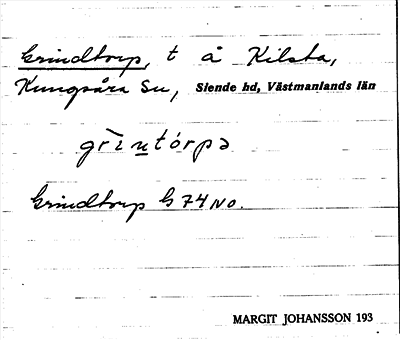 Grindtorp, t å Kilsta,
Kungsåra sn, Siende hd, Västmanlands län
grìntórpə
Grindtorp G 74 NO.
MARGIT JOHANSSON 193